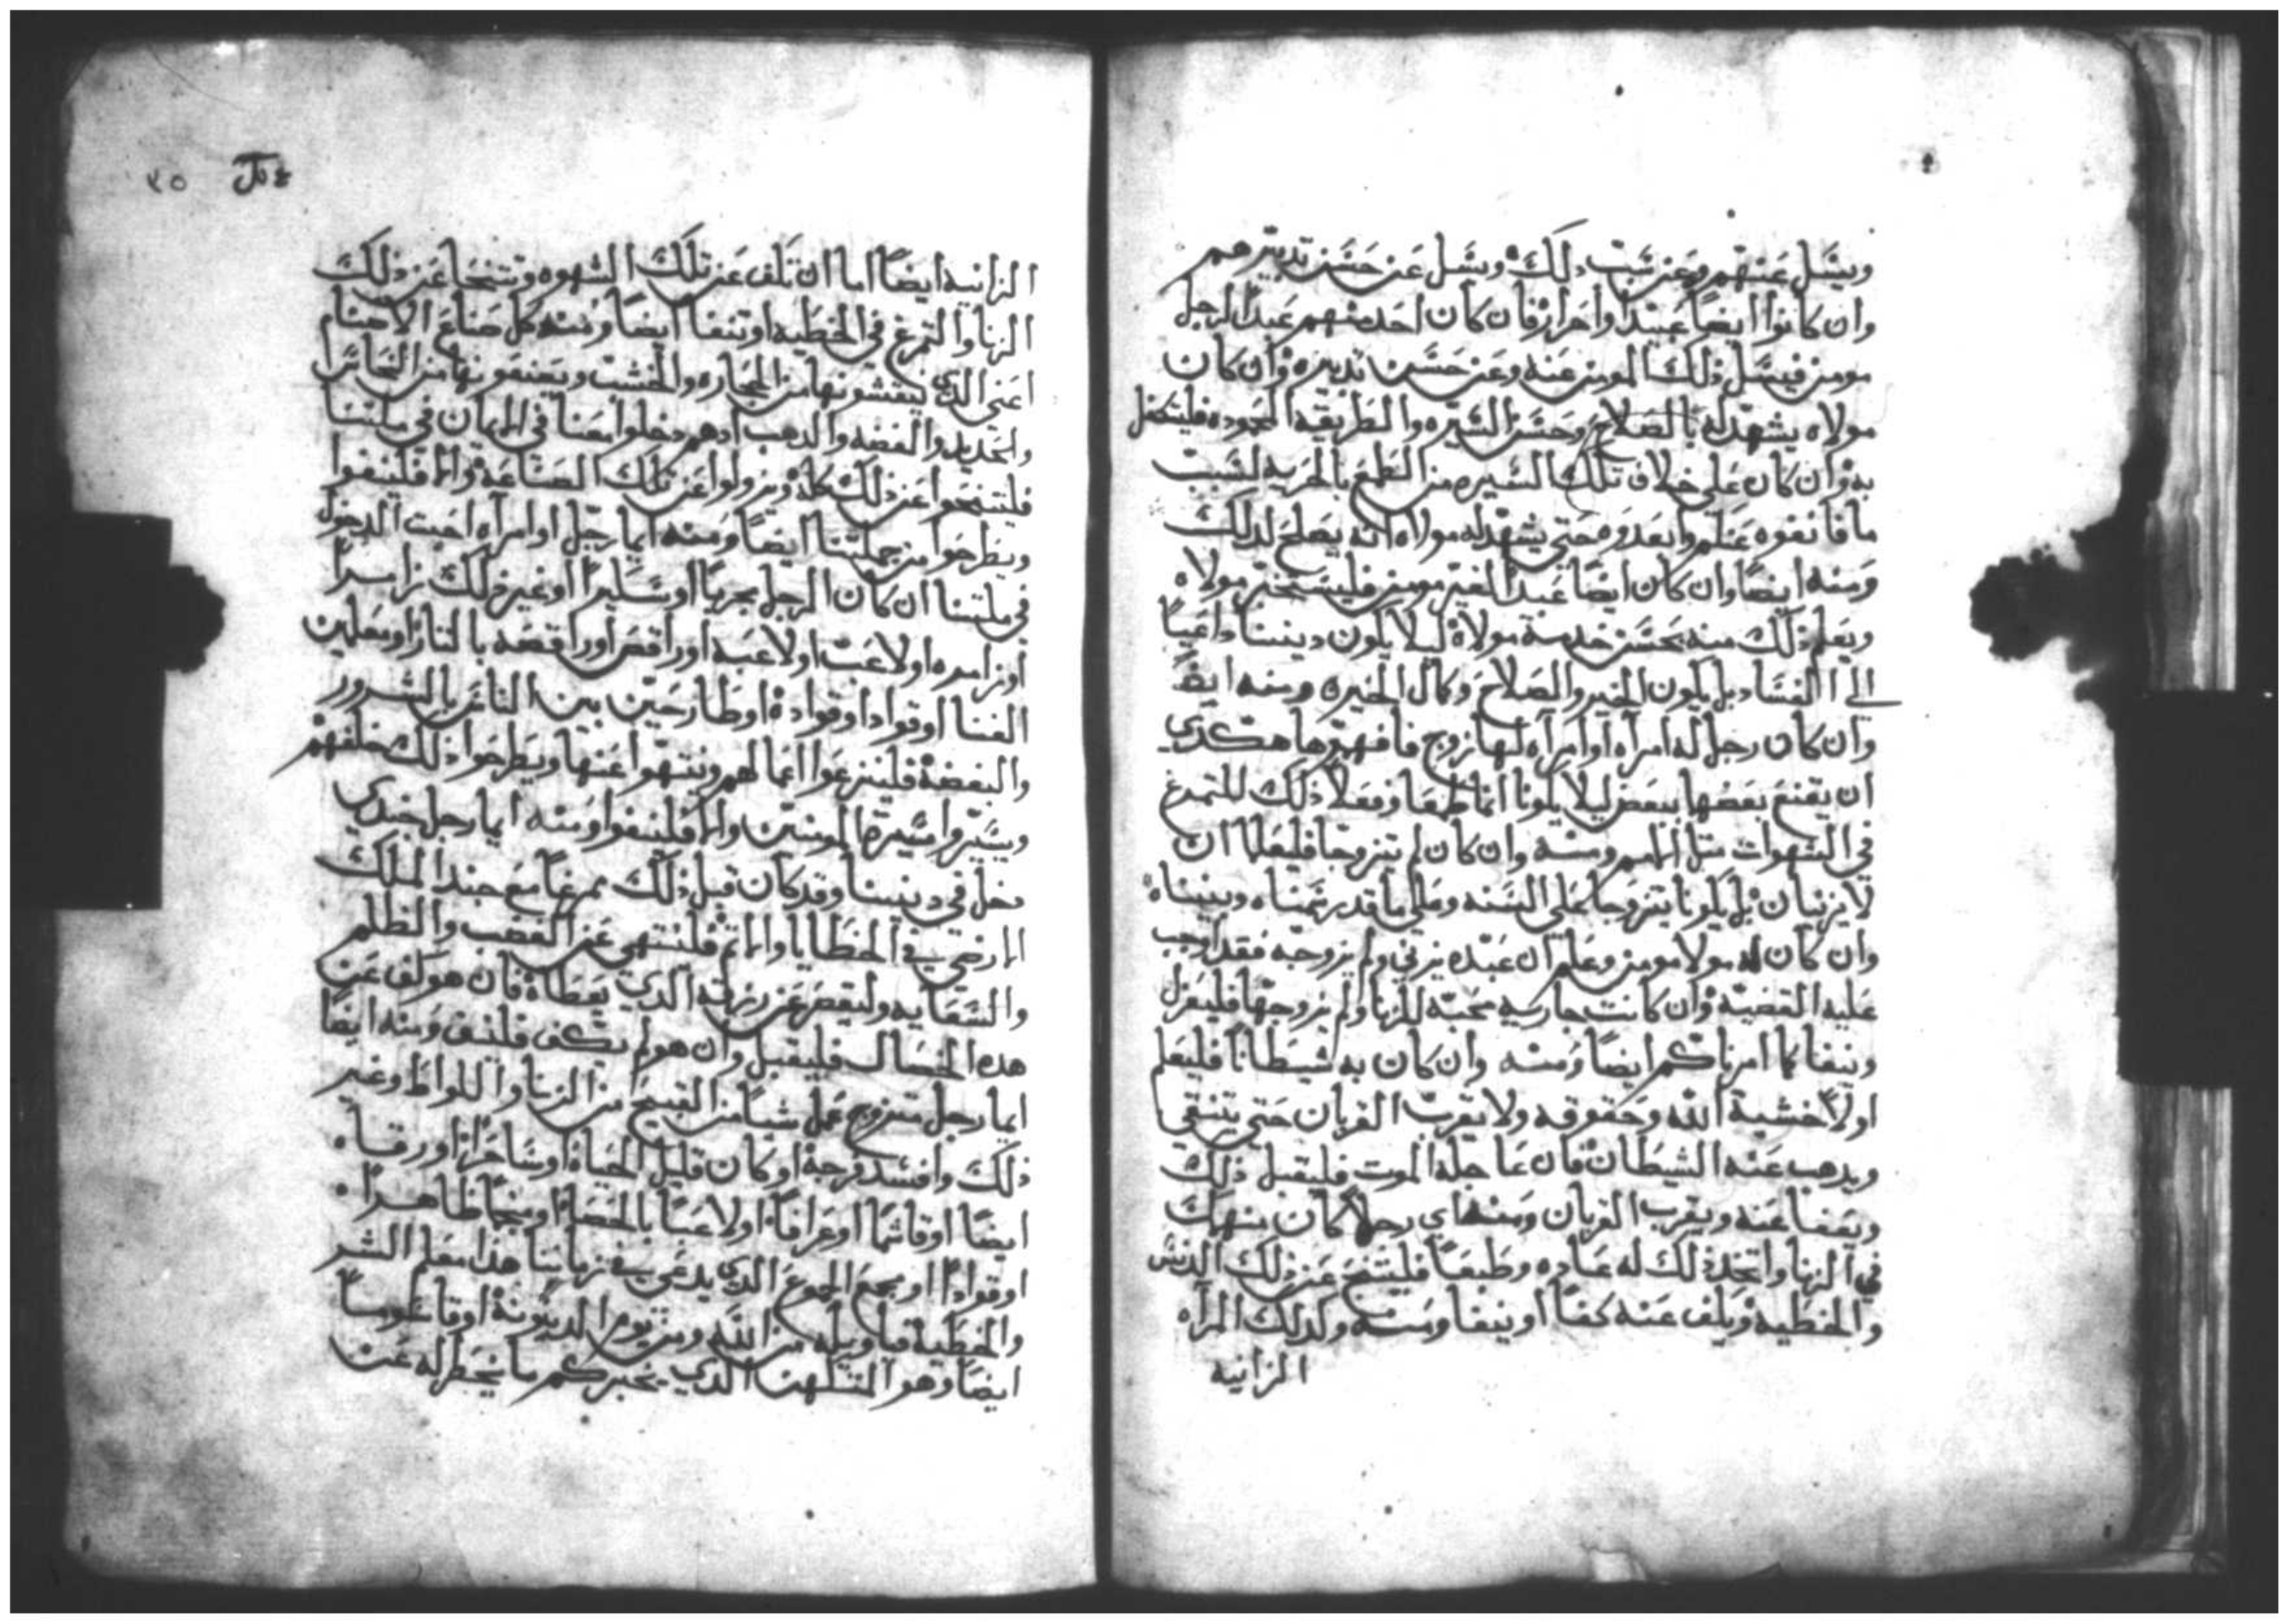 ويسل عنهم وعن سبب ذلك وسل عن حسن تدبيرهم
وان كانوا ايضا عبيد او احرار فان كان احد منهم عبدا لرجل
مومن فيسل ذلك المومن عنه وعن حسن تدبيره وان كان
مولاه يشهد له بالصلاح وحسن السيره والطريقه المحموده فليتحفل
به وان كان على خلاف تلك السيره من الطمع بالحريه لسبب
ما فانفوه عنكم وابعدوه حتى يشهد له مولاه انه يصلح لذلك
ومنه ايضا وان كان ايضا عبدا لغير مومن فليستخبر مولاه
ويعلم ذلك منه بحسن خدمته مولاه ليلا يكون ديننا داعيا
الى الفساد بل يكون الخير والصلاح وكمال الخيره ومنه ايضا
وان كان رجل له امراه او امراه لها زوج فافهموهما هكدي
ان يقنع بعضها ببعض ليلا يكونا انما طمعا وفعلا ذلك للتمرغ
في الشهوات مثل البهايم ومنه وان كان لم يتزوجا فليعلما ان
لا يزنيان بل يكونا يتزوجا على السنه وعلى ما قد رسمناه وبيناه
وان كان له مولا مومن وعلم ان عبده يزني ولم يزوجه فقد اوجب
عليه القضيه وان كانت جاريه محبه للزنا ولم يزوجها فليعزل
وينفا كما امرناكم ايضا ومنه وان كان به شيطانا فليعلم
اولا خشية الله وحقوقه ولا يقرب القربان حتى يتنقي
ويدهب عنه الشيطان فان عاجله الموت فليقبل ذلك
ويعفا عنه ويقرب القربان ومنه اي رجلا كان منهك
في الزنا واتخذ ذلك له عاده وطبعا فليتنح عن ذلك الدنس
والخطيه ويكف عنه كفا او ينفا ومنه وكدلك المراه
الزانيه
٤٥
الزانيه ايضا اما ان تكف عن تلك الشهوه وتتنحا عن ذلك
الزنا والتمرغ في الخطيه او تنفا ايضا ومنه كل صناع الاصنام
اعني الدي ينقشونها من الحجاره والخشب ويصنعونها من النحاس
والحديد والفضه والدهب ادهم دخلوا معنا في الايمان في ملتنا
فليتنحوا عن ذلك كله ويزولوا عن تلك الصناعه والا فلينفوا
ويطرحوا من جملتنا ايضا ومنه ايما رجل او امراه احبت الدخول
في ملتنا ان كان الرجل بحريا او سليرا او غير ذلك زامرا
او زامره او لاعب او لاعبه او راقص او راقصه بالنار او معلمين
الغنا او قوادا او قواده او طارحين بين الناس بالشرور
والبغضه فلينزعوا اعمالهم وينتهوا عنها ويطرحوا ذلك خلفهم
ويسيروا سيرة المومنين والا فلينفوا ومنه ايما رجل جندي
دخل في ديننا وقد كان قبل ذلك ممرغا مع جند الملك
الارضي في الخطايا والاثم فلينتهي عن الغضب والظلم
والسعايه وليقصر عن رزقه الدي يعطاه فان هو كف عن
هده الخصال فليقبل وان هو لم يكف فلينف ومنه ايضا
ايما رجل متزوج عمل شيا من القبيح من الزنا واللواط وغير
ذلك وافسد زوجه او كان قليل الحياه او ساحرا او رقاه
ايضا او قاسما او عرافا او لاعبا بالحصاه او منجما ظاهرا
او قوادا او مجمع الجموع الدي يدعي في زماننا هذا معلم الشر
والخطيه فياويله من الله ومن يوم الدينونه او قاطوسا
ايضا وهو المتكهن الدي يخبركم ما يخطر له عن